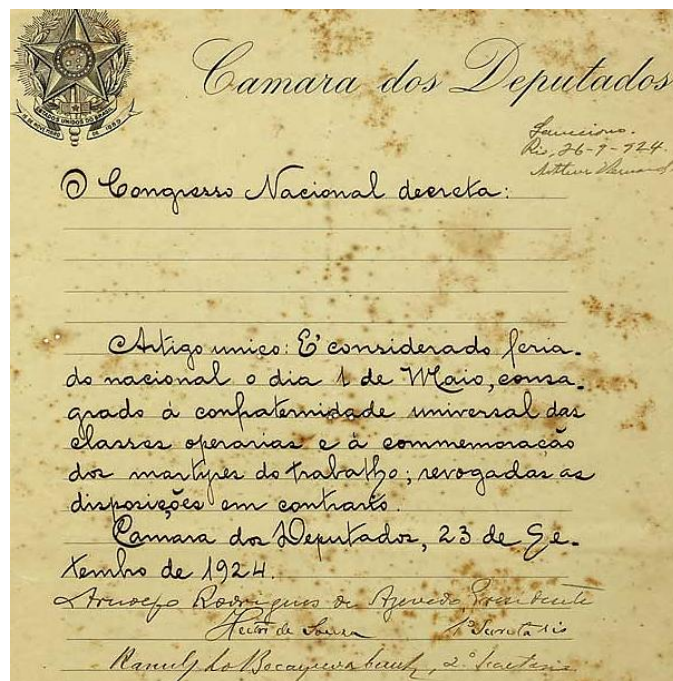 Camara dos Deputados
ESTADOS UNIDOS DO BRASIL
15 DE NOVEMBRO DE 1889
Sancciono.
Rio, 26-9-924.
Arthur Bernardes
O Congresso Nacional decreta:
Artigo unico: E' considerado feria-
do nacional o dia 1 de Maio, consa-
grado á confraternidade universal das
classes operarias e á commemoração
dos martyres do trabalho; revogadas as
disposições em contrario.
Camara dos Deputados, 23 de Se-
tembro de 1924.
Arnolfo Rodrigues de Azevedo, Presidente
Heitor de Souza 1º Secretario
Ranulpho Bocayuva Cunha, 2º Secretario